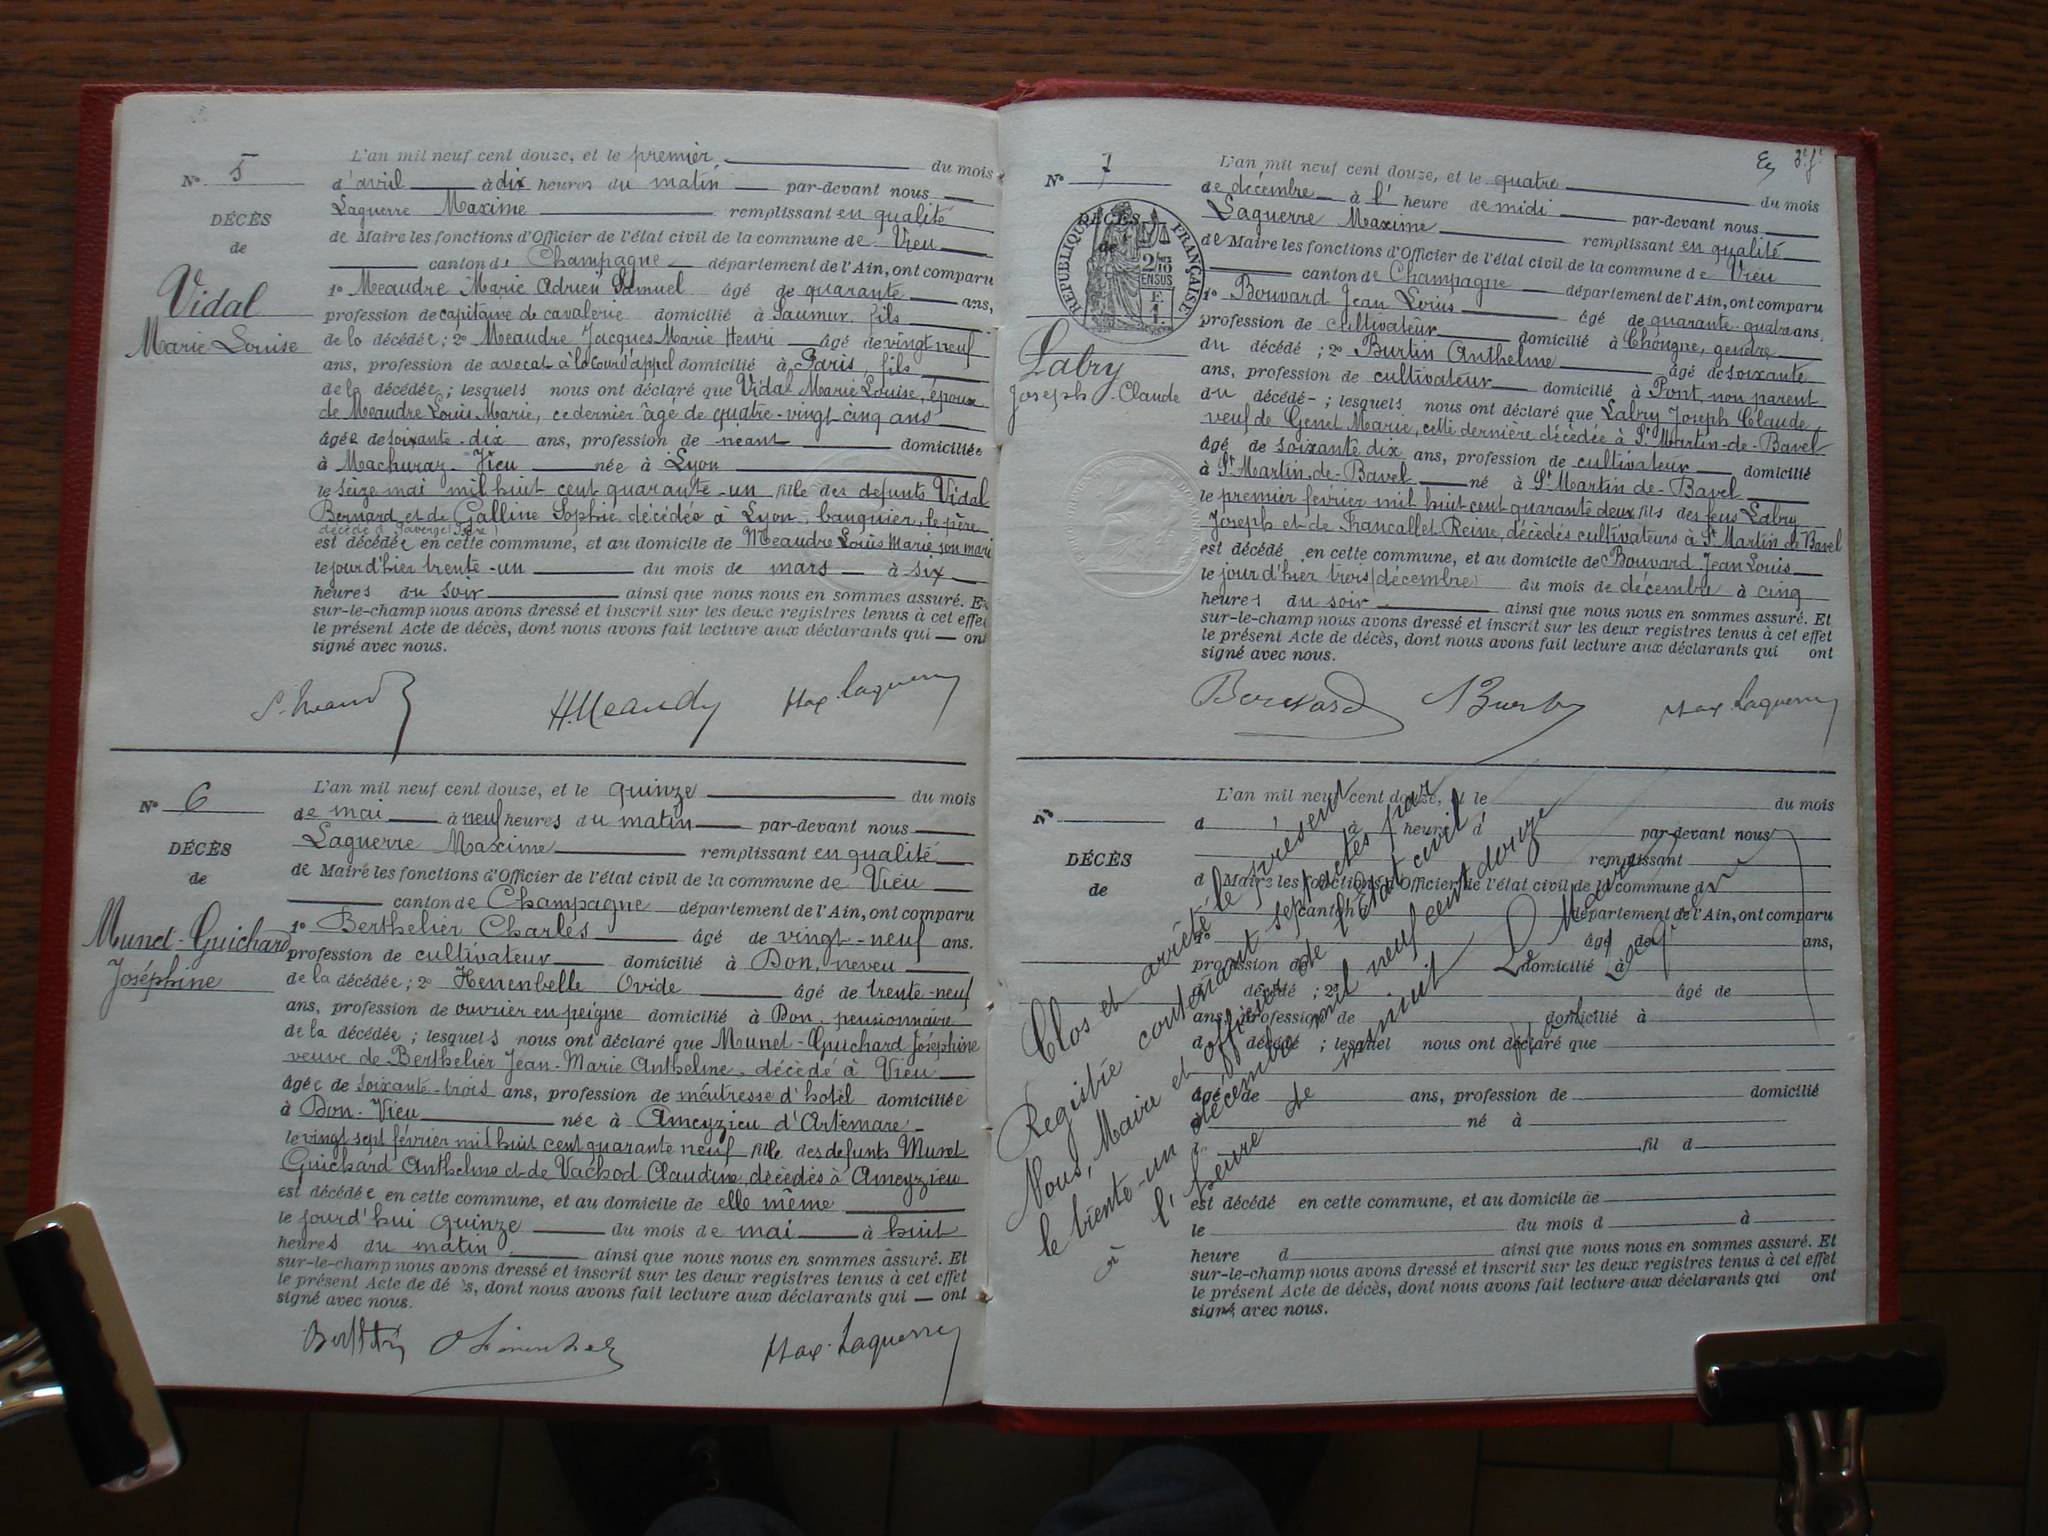 N° 5
DÉCÈS
de
Vidal
Marie Louise
L'an mil neuf cent douze, et le premier du mois
d'avril à dix heures du matin par-devant nous
Laguerre Maxime remplissant en qualité
de Maire les fonctions d'Officier de l'état civil de la commune de Vieu
canton de Champagne département de l'Ain, ont comparu
1° Meaudre Marie Adrien Samuel âgé de quarante ans,
profession de capitaine de cavalerie domicilié à Saumur, fils
de la décédée ; 2° Meaudre Jacques Marie Henri âgé de vingt neuf
ans, profession de avocat à la Cour d'appel domicilié à Paris, fils
de la décédée ; lesquels nous ont déclaré que Vidal Marie Louise, épouse
de Meaudre Louis Marie, ce dernier âgé de quatre-vingt cinq ans
âgée de soixante-dix ans, profession de néant domiciliée
à Machuraz-Vieu née à Lyon
le seize mai mil huit cent quarante-un fille des defunts Vidal
Bernard et de Galline Sophie, décédée à Lyon, banquier, le père
décédé à
est décédée en cette commune, et au domicile de Meaudre Louis Marie son mari
le jour d'hier trente-un du mois de mars à six
heures du soir ainsi que nous nous en sommes assuré. Et
sur-le-champ nous avons dressé et inscrit sur les deux registres tenus à cet effet
le présent Acte de décès, dont nous avons fait lecture aux déclarants qui — ont
signé avec nous.
H. Meaudre Max Laguerre
N° 6
DÉCÈS
de
Munet-Guichard
Joséphine
L'an mil neuf cent douze, et le quinze du mois
de mai à neuf heures du matin par-devant nous
Laguerre Maxime remplissant en qualité
de Maire les fonctions d'Officier de l'état civil de la commune de Vieu
canton de Champagne département de l'Ain, ont comparu
1° Berthelier Charles âgé de vingt-neuf ans.
profession de cultivateur domicilié à Don, neveu
de la décédée ; 2° Henenbelle Ovide âgé de trente-neuf
ans, profession de ouvrier en peigne domicilié à Don, pensionnaire
de la décédée ; lesquels nous ont déclaré que Munet-Guichard Joséphine
veuve de Berthelier Jean-Marie Anthelme, décédé à Vieu
âgée de soixante-trois ans, profession de maîtresse d'hotel domiciliée
à Don-Vieu née à Ameyzieu d'Artemare
le vingt sept février mil huit cent quarante neuf fille des defunts Munet
Guichard Anthelme et de Vachod Claudine, décédés à Ameyzieu
est décédée en cette commune, et au domicile de elle même
le jourd'hui quinze du mois de mai à huit
heures du matin ainsi que nous nous en sommes assuré. Et
sur-le-champ nous avons dressé et inscrit sur les deux registres tenus à cet effet
le présent Acte de décès, dont nous avons fait lecture aux déclarants qui — ont
signé avec nous.
Max Laguerre
N° 7
RÉPUBLIQUE FRANÇAISE
2/10 EN SUS
DÉCÈS
de
Labry
Joseph-Claude
L'an mil neuf cent douze, et le quatre du mois
de décembre à l' heure de midi par-devant nous
Laguerre Maxime remplissant en qualité
de Maire les fonctions d'Officier de l'état civil de la commune de Vieu
canton de Champagne département de l'Ain, ont comparu
1° Bouvard Jean Louis âgé de quarante-quatre ans,
profession de cultivateur domicilié à Chongne, gendre
du décédé ; 2° Burtin Anthelme âgé de soixante
ans, profession de cultivateur domicilié à Pont, non parent
du décédé ; lesquels nous ont déclaré que Labry Joseph Claude,
veuf de Genet Marie, cette dernière décédée à St Martin-de-Bavel
âgé de soixante dix ans, profession de cultivateur domicilié
à St Martin-de-Bavel né à St Martin de-Bavel
le premier février mil huit cent quarante deux fils des feus Labry
Joseph et de Francallet Reine, décédés cultivateurs à St Martin de Bavel
est décédé en cette commune, et au domicile de Bouvard Jean Louis
le jour d'hier trois (décembre) du mois de décembre à cinq
heures du soir ainsi que nous nous en sommes assuré. Et
sur-le-champ nous avons dressé et inscrit sur les deux registres tenus à cet effet
le présent Acte de décès, dont nous avons fait lecture aux déclarants qui ont
signé avec nous.
Bouvard Max Laguerre
N°
DÉCÈS
de
L'an mil neuf cent douze, et le du mois
d à heure d par-devant nous
remplissant
d Maire les fonctions d'Officier de l'état civil de la commune d
canton d département de l'Ain, ont comparu
1° âgé de ans,
profession de domicilié à
d décédé ; 2° âgé de
ans, profession de domicilié à
d décédé ; lesquel nous ont déclaré que
âgé de ans, profession de domicilié
à né à
fil d
est décédé en cette commune, et au domicile de
le du mois d à
heure d ainsi que nous nous en sommes assuré. Et
sur-le-champ nous avons dressé et inscrit sur les deux registres tenus à cet effet
le présent Acte de décès, dont nous avons fait lecture aux déclarants qui ont
signé avec nous.
Clos et arrêté le présent
Registre contenant sept actes par
Nous, Maire et officier de l'état civil
le trente-un décembre mil neuf cent douze
à l'heure de minuit
Le Maire